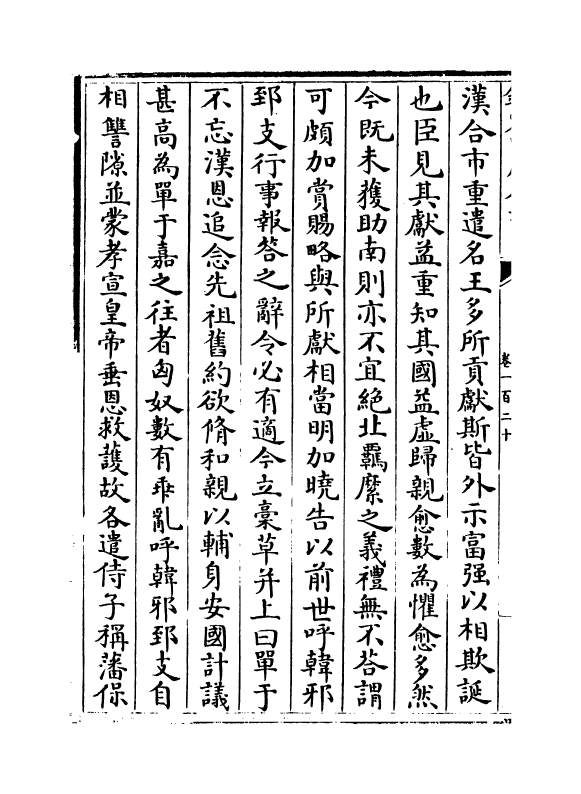 漢合市重遣名王多所貢獻斯皆外示富强以相欺誕
也臣見其獻益重知其國益虛歸親愈數為懼愈多然
今既未獲助南則亦不宜絶北羈縻之義禮無不荅謂
可頗加賞賜略與所獻相當明加曉告以前世呼韓邪
郅支行事報答之辭令必有適今立稾草并上曰單于
不忘漢恩追念先祖舊約欲脩和親以輔身安國計議
甚高為單于嘉之往者匈奴數有乖亂呼韓邪郅支自
相讐隙並蒙孝宣皇帝垂恩救護故各遣侍子稱藩保
卷一百二十